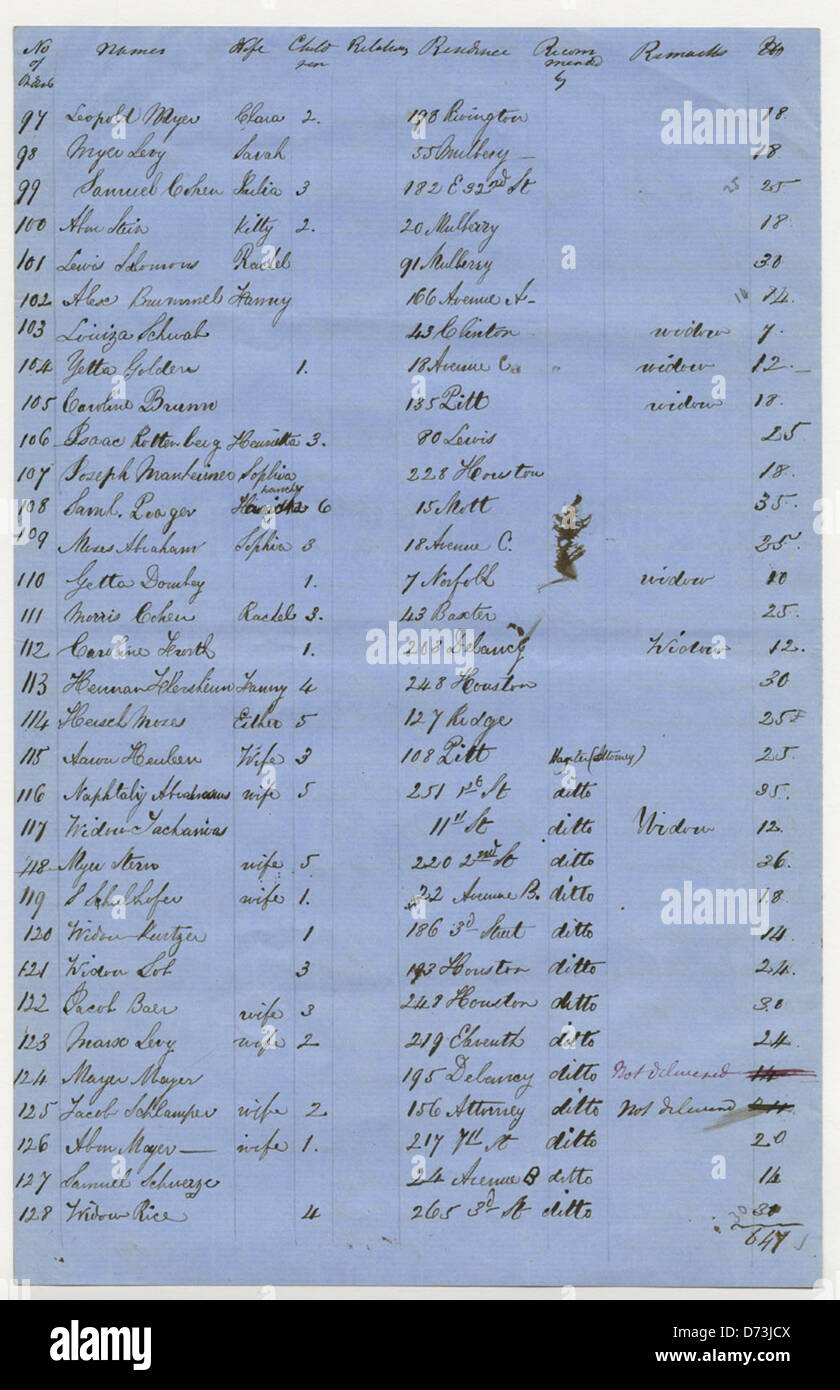 No of Tickets Names Wife Children Relations Residence Recommended by Remarks lbs
97 Leopold Myer Clara 2. 193 Rivington 18.
98 Myer Levy Sarah 55 Mulbery — 18
99 Samuel Cohen Julia 3 182 E 32nd St 25
100 Abm Stein Kitty 2. 20 Mulberry 18.
101 Lewis Solomons Rachel 91 Mulberry 30
102 Alex Brummel Fanny 166 Avenue A- 14.
103 Louiza Schwab 43 Clinton widow 7.
104 Yetta Golden 1. 18 Avenue C widow 12.—
105 Caroline Brunn 135 Pitt widow 18.
106 Isaac Rottenberg Henrietta 3. 80 Lewis 25
107 Joseph Manheimer Sophia 228 Houston 18.
108 Saml. Prager 6 15 Mott 35.
109 Moses Abraham Sophia 3 18 Avenue C. 25.
110 Getta Dombey 1. 7 Norfolk widow 10
111 Morris Cohen Rachel 3. 43 Baxter 25.
112 Caroline 1. 203 Delancy Widow 12.
113 Herman Hersheim Fanny 4 248 Houston 30
114 Hersch Moses Esther 5 127 Ridge 25
115 Aaron Wife 3 108 Pitt (Attorney) 25.
116 Naphtaly Abrahams wife 5 251 1st St ditto 35.
117 Widow 11th St ditto Widow 12.
118 Myer Stern wife 5 220 2nd St ditto 36.
119 S wife 1. 22 Avenue B. ditto 18.
120 Widow Kurtzer 1 186 3d Street ditto 14.
121 Widow Lob 3 193 Houston ditto 24.
122 Jacob Baer wife 3 248 Houston ditto 30
123 Marx Levy wife 2 219 Eleventh ditto 24
124 Mayer Mayer 195 Delancy ditto Not delivered 14
125 Jacob Schlamper wife 2 156 Attorney ditto Not delivered
126 Abm Mayer — wife 1. 217 7th St ditto 20
127 Samuel Schwerze 24 Avenue B ditto 14
128 Widow Rice 4 265 3d St ditto 30 30
647
alamy
Image ID: D73JCX
www.alamy.com